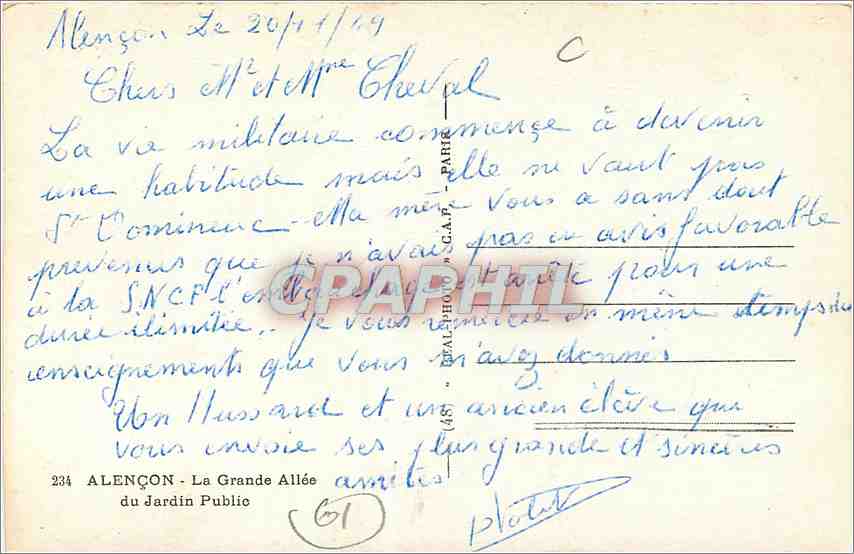 Alençon Le 20/11/49
C
Chers Mr et Mme Cheval
La vie militaire commençe à devenir
une habitude mais elle ne vaut pas
St Domineuc. Ma mère vous a sans dout
prevenus que je n'avais pas eu avis favorable
à la S.N.C.F l'embauchage est arrêté pour une
durée ilimitée. Je vous remercie en même temps des
renseignements que vous m'avez donnés
Un Hussard et un ancien élève qui
vous envoie ses plus grande et sincères
amités
234 ALENÇON - La Grande Allée
du Jardin Public
61
(4S) « REAL-PHOTO » C.A.P. - PARIS
CPAPHIL